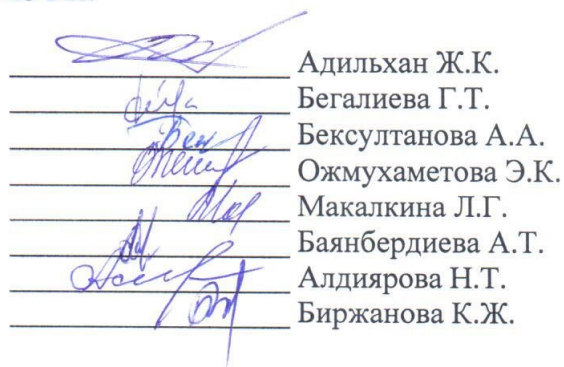 Адильхан Ж.К.
Бегалиева Г.Т.
Бексултанова А.А.
Ожмухаметова Э.К.
Макалкина Л.Г.
Баянбердиева А.Т.
Алдиярова Н.Т.
Биржанова К.Ж.